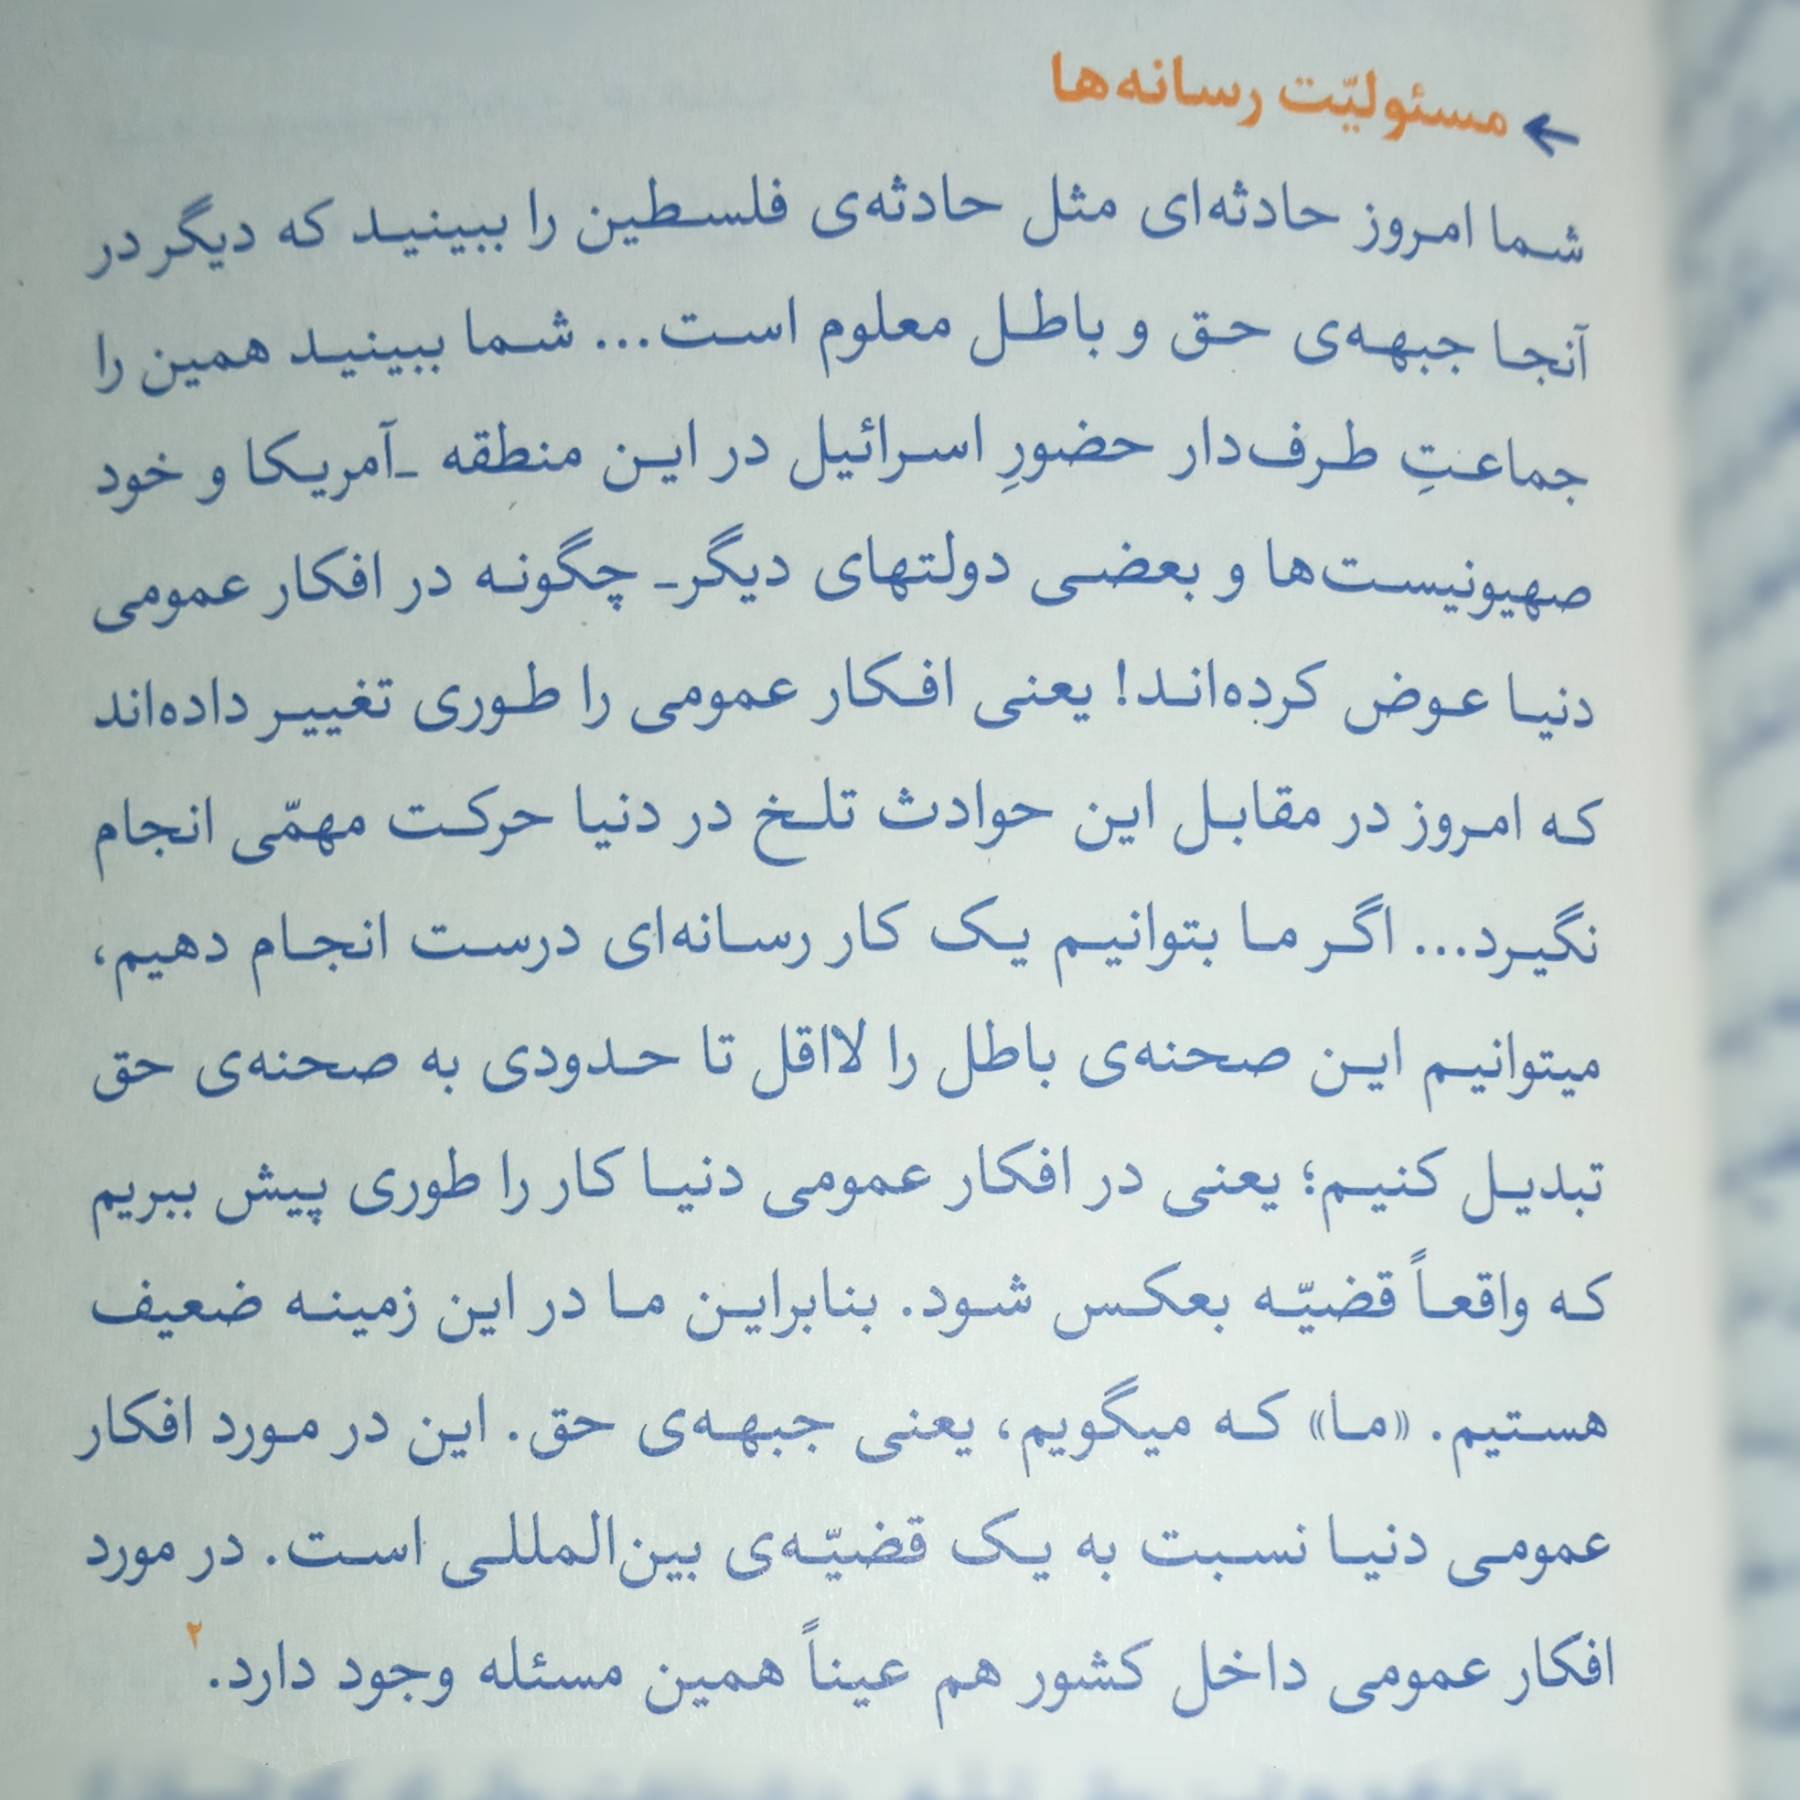 ← مسئولیّت رسانه‌ها
شما امروز حادثه‌ای مثل حادثه‌ی فلسطین را ببینید که دیگر در
آنجا جبهه‌ی حق و باطل معلوم است... شما ببینید همین را
جماعتِ طرف‌دار حضورِ اسرائیل در این منطقه ـ‌آمریکا و خود
صهیونیست‌ها و بعضی دولتهای دیگر‌ـ چگونه در افکار عمومی
دنیا عوض کرده‌اند! یعنی افکار عمومی را طوری تغییر داده‌اند
که امروز در مقابل این حوادث تلخ در دنیا حرکت مهمّی انجام
نگیرد... اگر ما بتوانیم یک کار رسانه‌ای درست انجام دهیم،
میتوانیم این صحنه‌ی باطل را لااقل تا حدودی به صحنه‌ی حق
تبدیل کنیم؛ یعنی در افکار عمومی دنیا کار را طوری پیش ببریم
که واقعاً قضیّه بعکس شود. بنابراین ما در این زمینه ضعیف
هستیم. «ما» که میگویم، یعنی جبهه‌ی حق. این در مورد افکار
عمومی دنیا نسبت به یک قضیّه‌ی بین‌المللی است. در مورد
افکار عمومی داخل کشور هم عیناً همین مسئله وجود دارد.۲